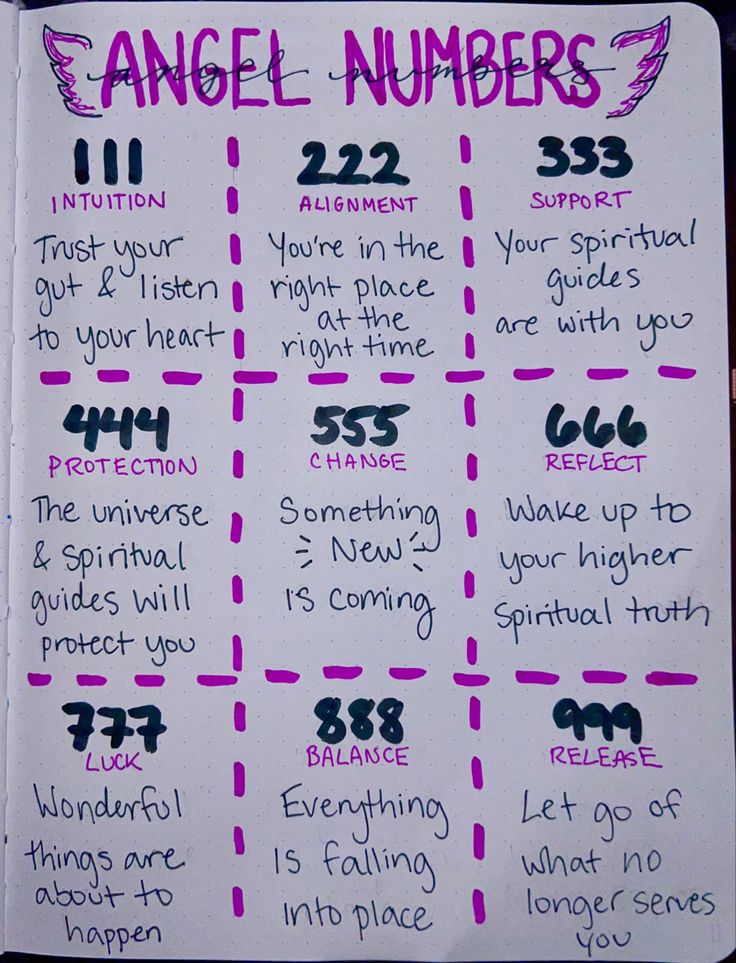 ANGEL NUMBERS
angel numbers
111
INTUITION
Trust your
gut & listen
to your heart
222
ALIGNMENT
You're in the
right place
at the
right time
333
SUPPORT
Your spiritual
guides
are with you
444
PROTECTION
The universe
& spiritual
guides will
protect you
555
CHANGE
Something
New
is coming
666
REFLECT
Wake up to
your higher
spiritual truth
777
LUCK
Wonderful
things are
about to
happen
888
BALANCE
Everything
is falling
into place
999
RELEASE
Let go of
what no
longer serves
you